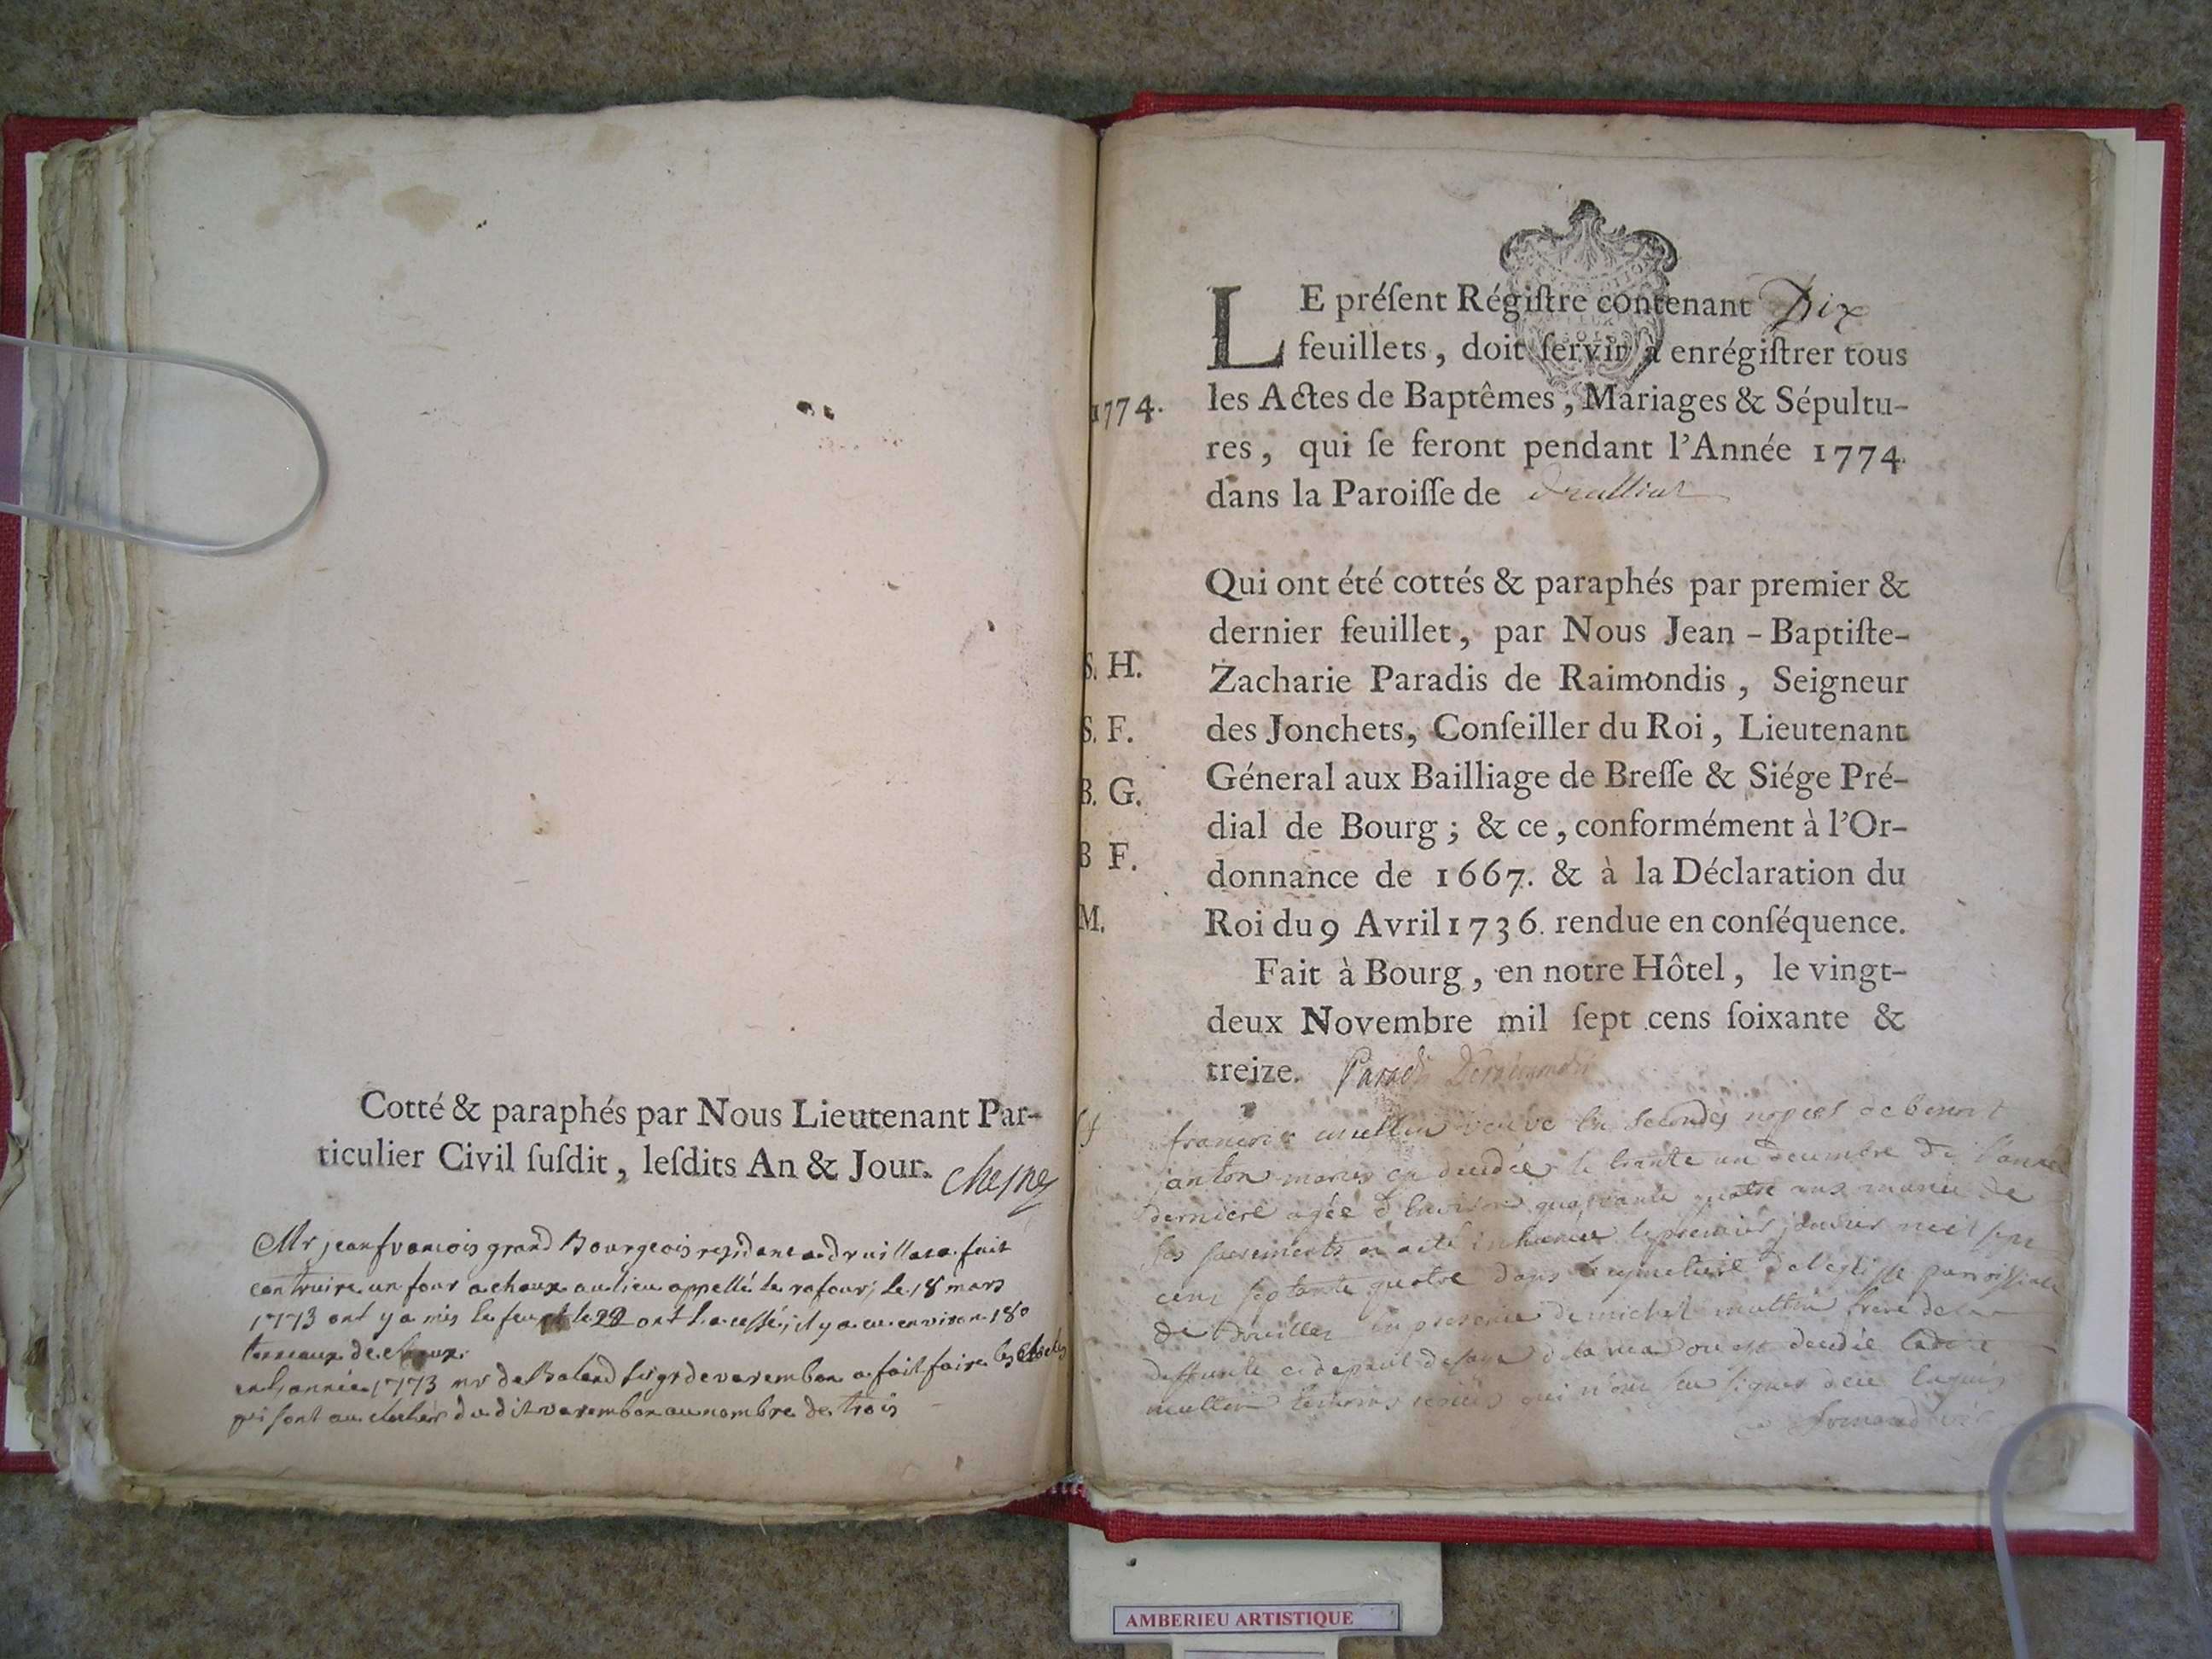 Cotté & paraphés par Nous Lieutenant Par-
ticulier Civil ſuſdit, leſdits An & Jour. chesne
Mr jean francois grand Bourgeois residant a druillat a fait
contruire un four a chaux au lieu appellé le rafour; le 18 mars
1773 ont y a mis le feu et le 22 ont l'a cessé; il y a eu environ 180
tonneaux de chaux.
en l'année 1773 mr de Bolend de varembon a fait faire les cloches
qui sont au clocher du dit varembon au nombre de trois
1774.
S. H.
S. F.
B. G.
B F.
M.
LE préſent Régiſtre contenant Dix
feuillets, doit ſervir à enrégiſtrer tous
les Actes de Baptêmes, Mariages & Sépultu-
res, qui ſe feront pendant l'Année 1774.
dans la Paroiſſe de Druilliat
Qui ont été cottés & paraphés par premier &
dernier feuillet, par Nous Jean-Baptiſte-
Zacharie Paradis de Raimondis, Seigneur
des Jonchets, Conſeiller du Roi, Lieutenant
Géneral aux Bailliage de Breſſe & Siége Pré-
dial de Bourg; & ce, conformément à l'Or-
donnance de 1667. & à la Déclaration du
Roi du 9 Avril 1736. rendue en conſéquence.
Fait à Bourg, en notre Hôtel, le vingt-
deux Novembre mil ſept cens ſoixante &
treize. Paradis Deraimondis
francoise mullin veuve en secondes nopces de benoit
janton marier en decedée le trante un decembre de l'année
derniere agée d'environ quarante quatre ans munie de
ses sacrements a été inhumée le premier janvier mil sept
cent septante quatre dans le cymetiere de l'eglise parroissiale
de druillat en presence de michel mullin frere de la
deffunte et de ou est decedée ladite
mullin temoins requis qui n'ont seu signer de ce enquis